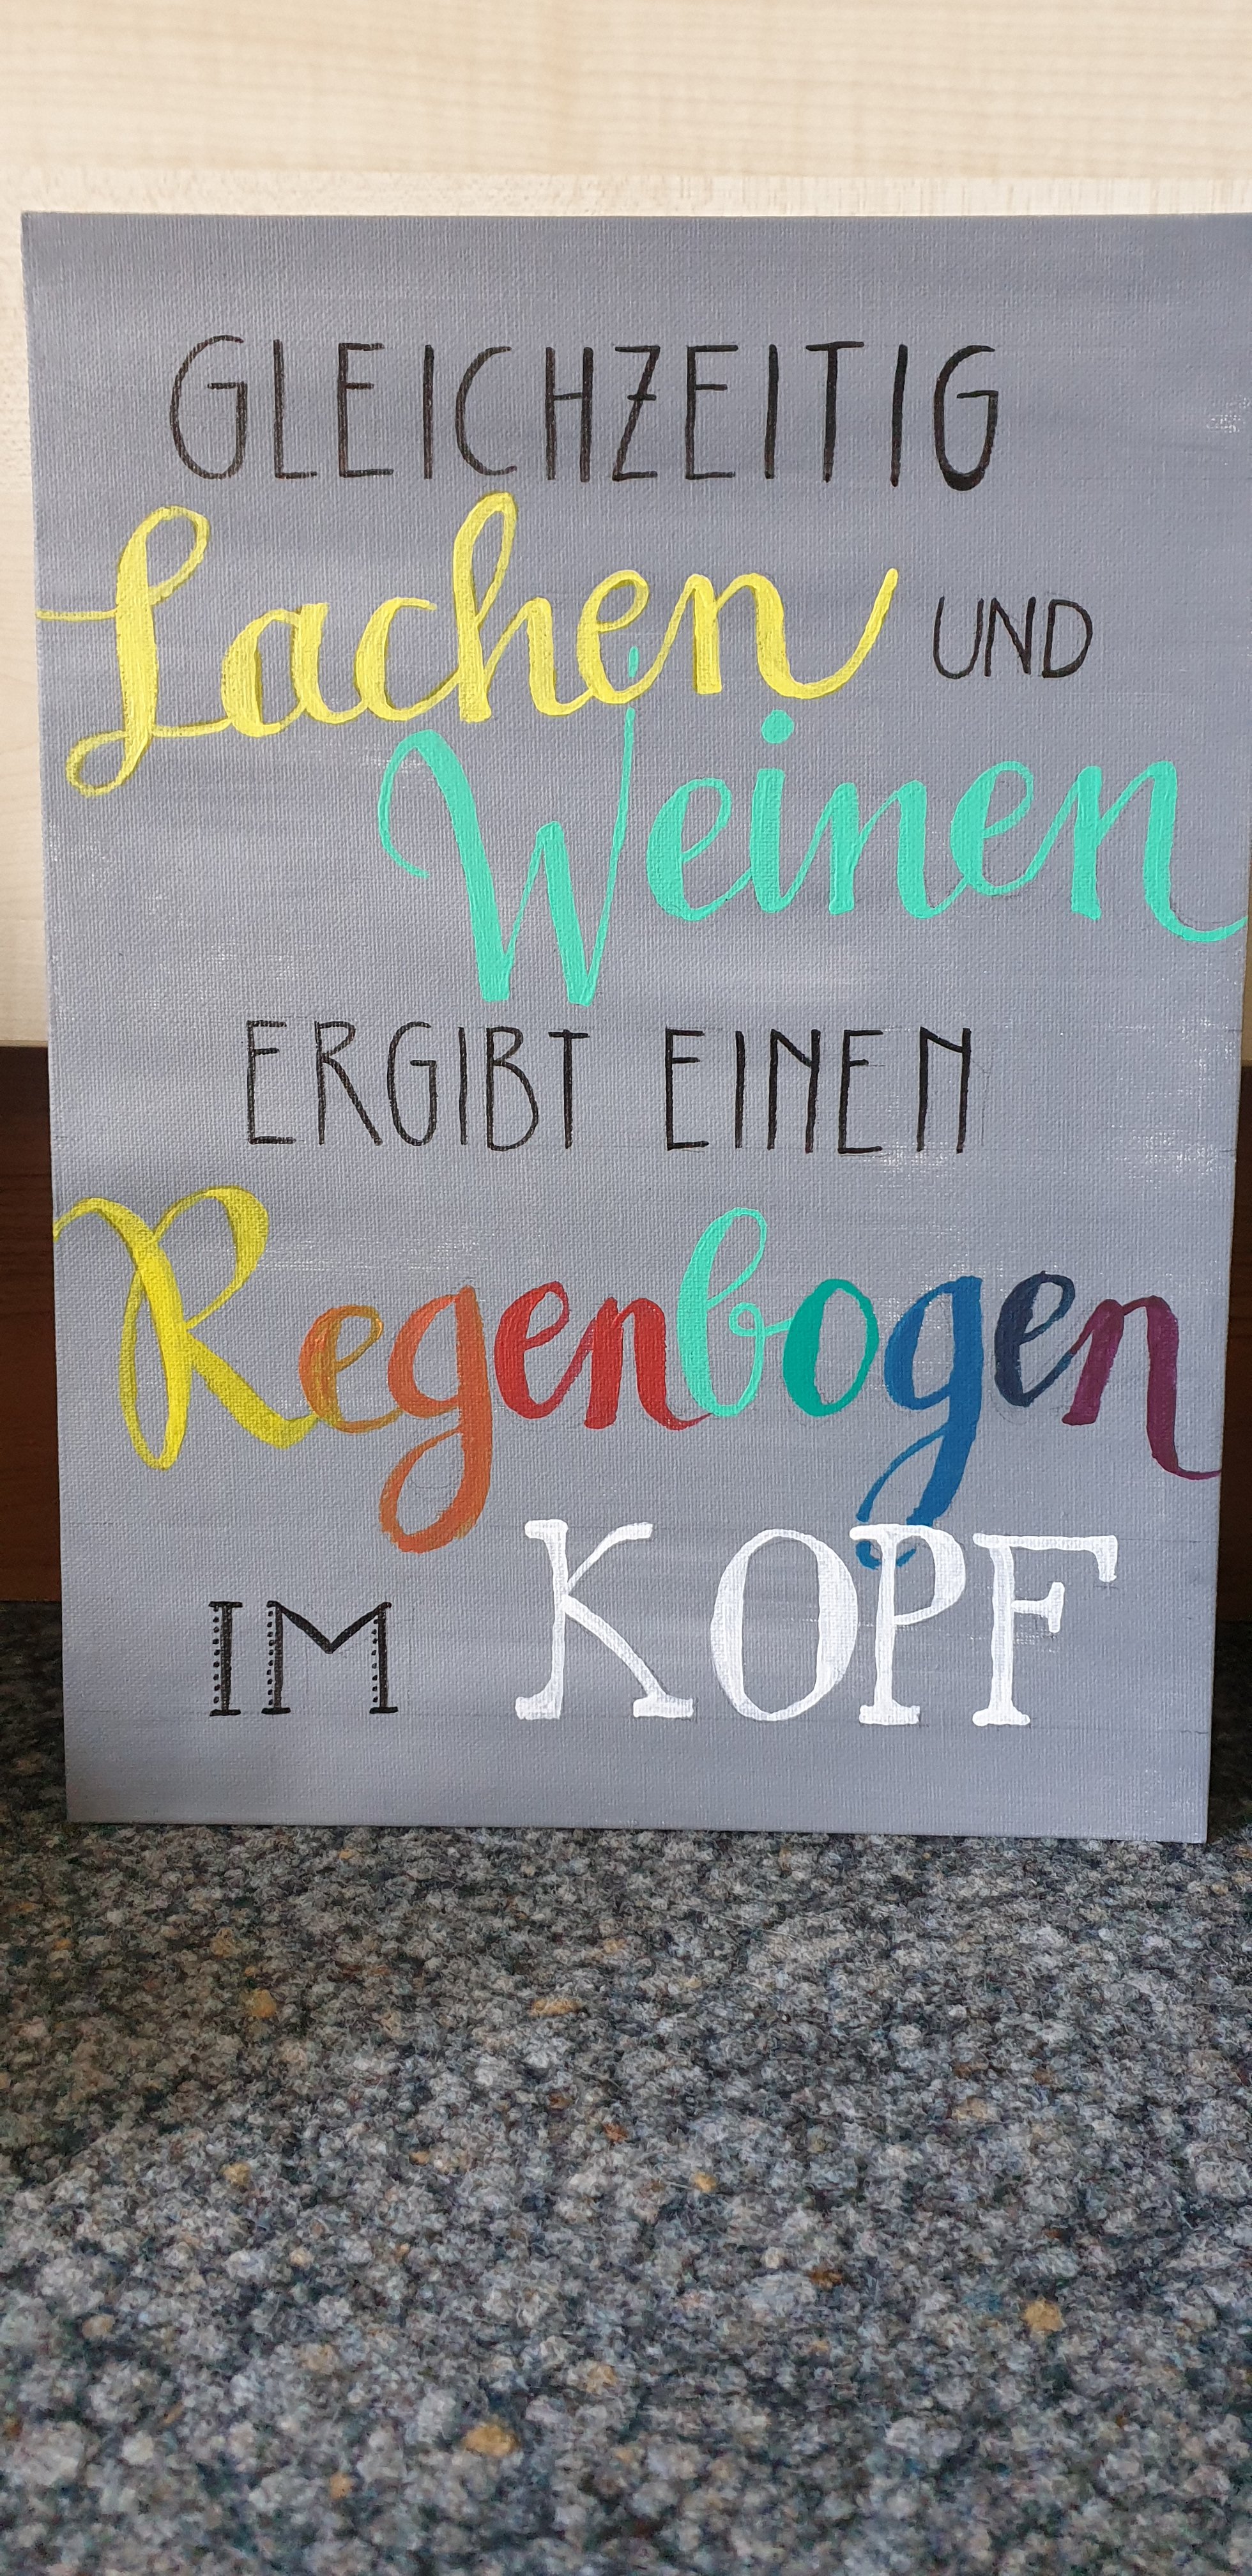 GLEICHZEITIG
Lachen UND
Weinen
ERGIBT EINEN
Regenbogen
IM KOPF